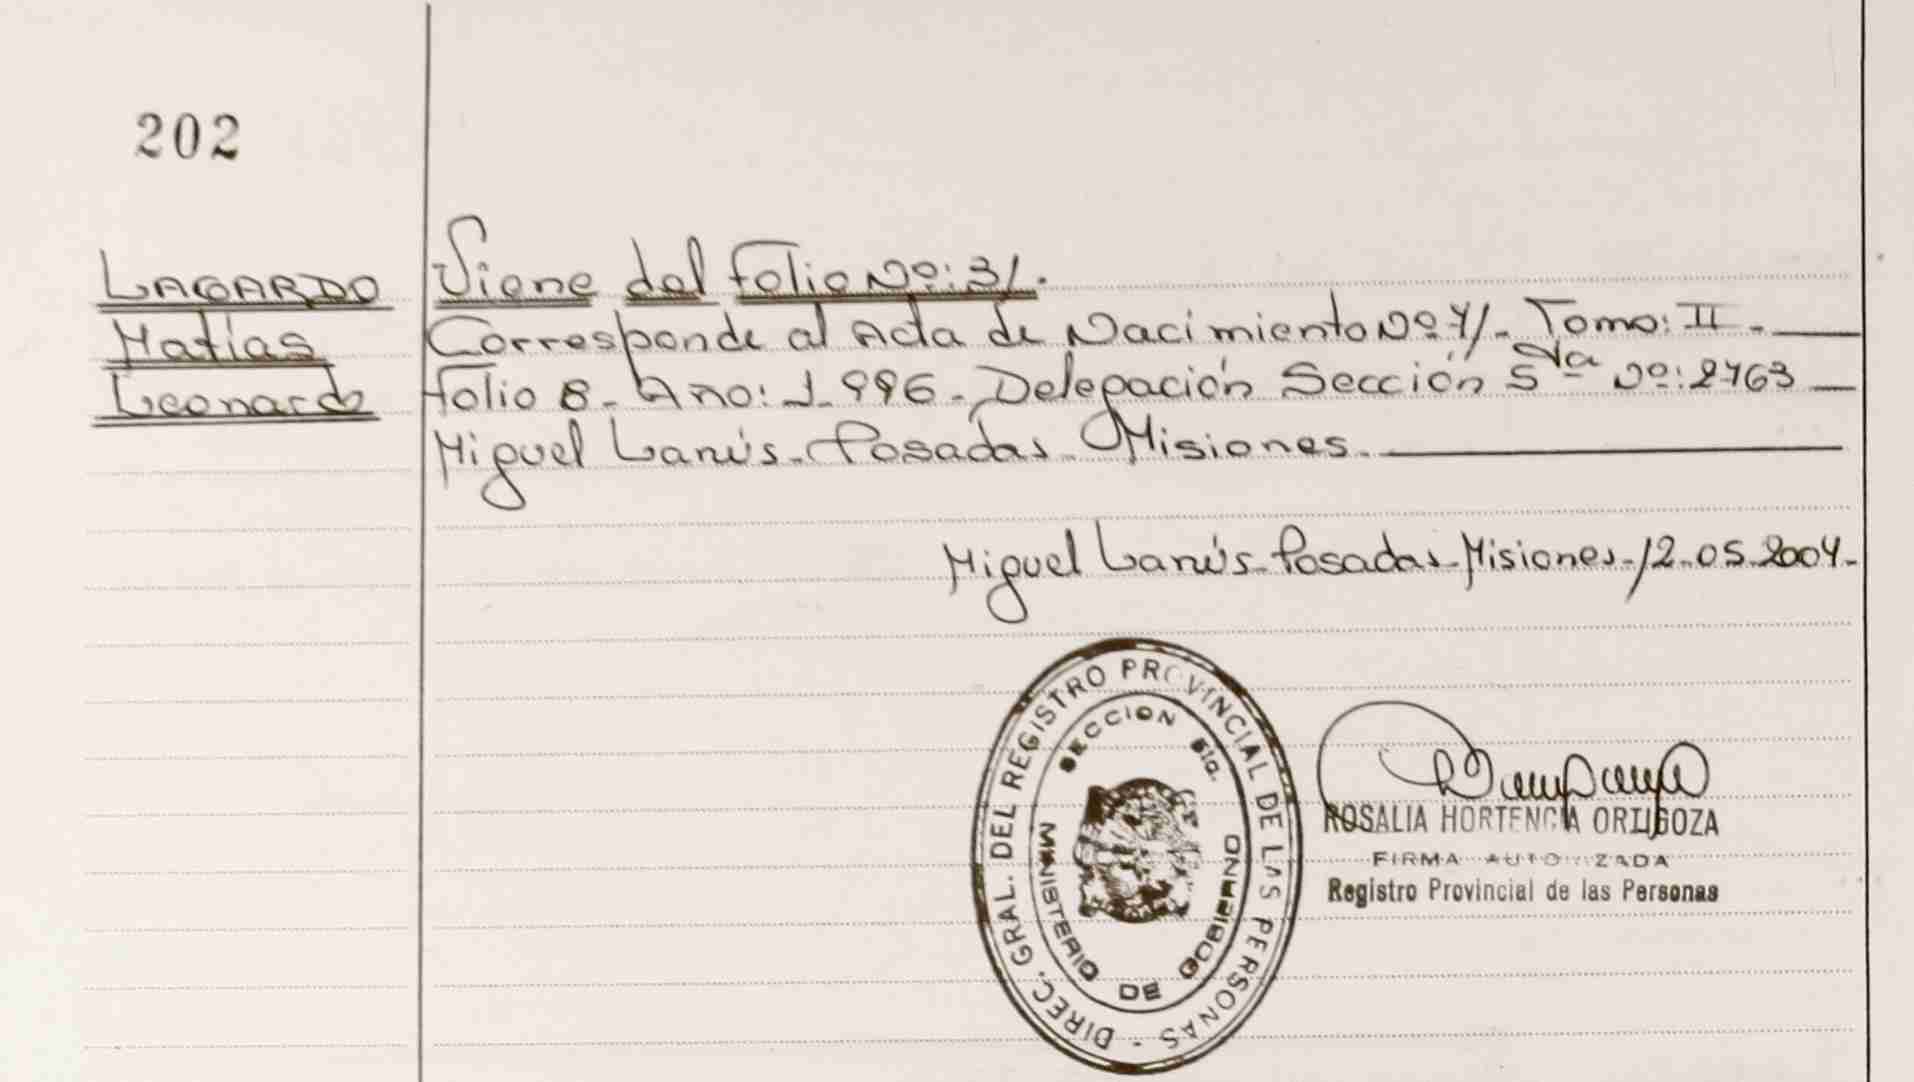 202
LAGARDO
Matías
Leonardo
Viene del folio Nº: 31.
Corresponde al Acta de Nacimiento Nº 41. Tomo: II.
folio 8. Año: 1.996. Delegación Sección 5ta Nº: 2763
Miguel Lanús. Posadas. Misiones.
Miguel Lanús. Posadas. Misiones. 12.05.2004.
DIREC. GRAL. DEL REGISTRO PROVINCIAL DE LAS PERSONAS -
SECCION 5ta.
MINISTERIO DE GOBIERNO
ROSALIA HORTENCIA ORTIGOZA
FIRMA AUTORIZADA
Registro Provincial de las Personas